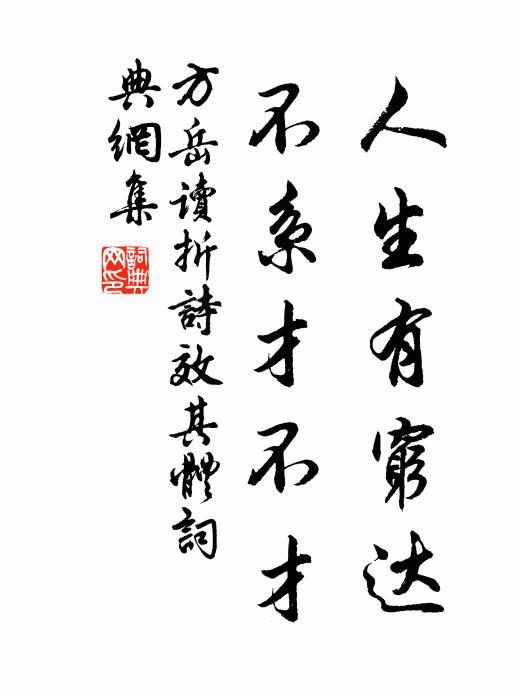 人生有窮达
不系才不才
方岳讀折詩效其體詞
典網集
詞典网印